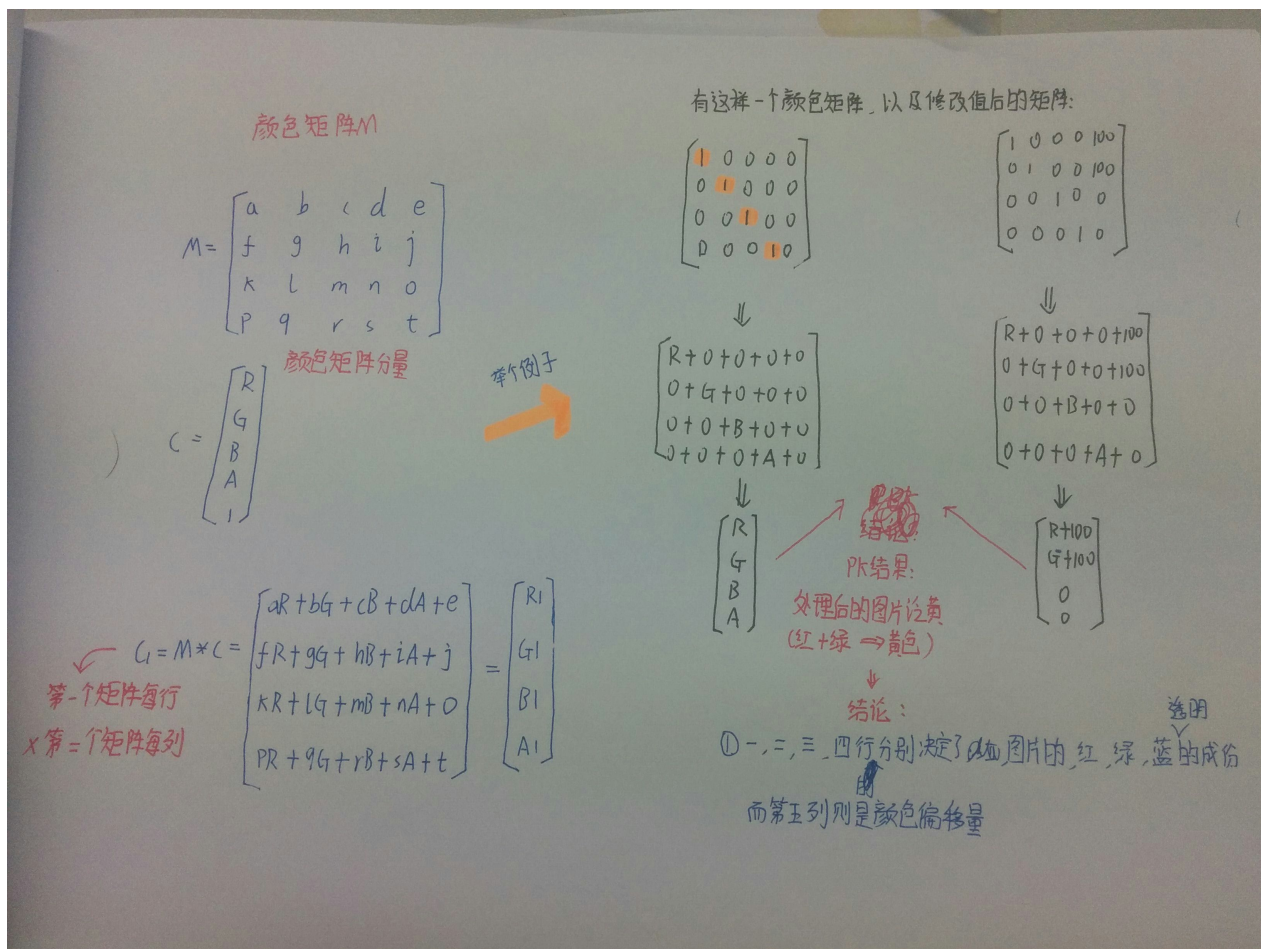 颜色矩阵M
M=
a b c d e
f g h i j
k l m n o
p q r s t
颜色矩阵分量
C=
R
G
B
A
1
C1=M*C=
aR+bG+cB+dA+e
fR+gG+hB+iA+j
kR+lG+mB+nA+o
pR+qG+rB+sA+t
=
R1
G1
B1
A1
第一个矩阵每行
x第二个矩阵每列
举个例子
有这样一个颜色矩阵,以及修改值后的矩阵:
1 0 0 0 0
0 1 0 0 0
0 0 1 0 0
0 0 0 1 0
⇓
R+0+0+0+0
0+G+0+0+0
0+0+B+0+0
0+0+0+A+0
⇓
R
G
B
A
1 0 0 0 100
0 1 0 0 100
0 0 1 0 0
0 0 0 1 0
⇓
R+0+0+0+100
0+G+0+0+100
0+0+B+0+0
0+0+0+A+0
⇓
R+100
G+100
0
0
PK结果:
处理后的图片泛黄
(红+绿⇒黄色)
结论:
透明
①一,二,三,四行分别决定了图片的,红,绿,蓝的成份
而第五列则是颜色偏移量